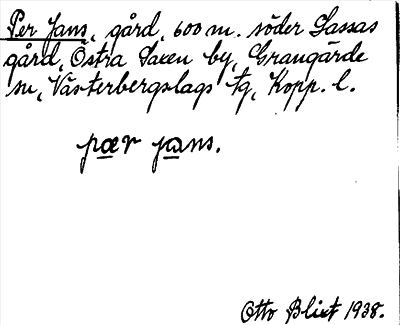 Per Jans, gård, 600 m. söder Lassas
gård, Östra Saxen by, Grangärde
sn, Västerbergslags tg, Kopp. l.
pær jans.
Otto Blixt 1938.